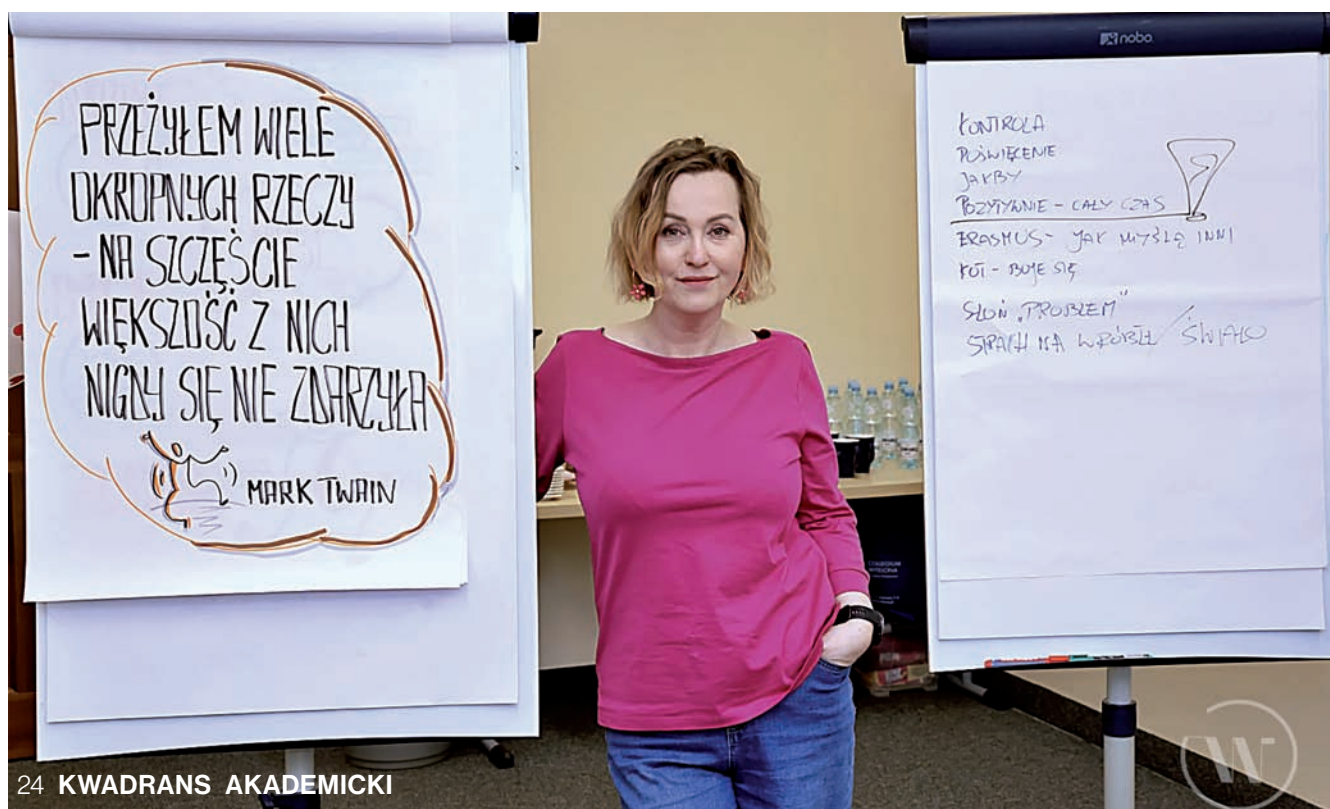 PRZEŻYŁEM WIELE
OKROPNYCH RZECZY
- NA SZCZĘŚCIE
WIĘKSZOŚĆ Z NICH
NIGDY SIĘ NIE ZDARZYŁA
MARK TWAIN
nobo
KONTROLA
POŚWIĘCENIE
JAKBY
POZYTYWNIE - CAŁY CZAS
ERASMUS - JAK MYŚLĄ INNI
KOT - BOJE SIĘ
SŁOŃ „PROBLEM"
STRACH NA WRÓBLE /
W
24 KWADRANS AKADEMICKI